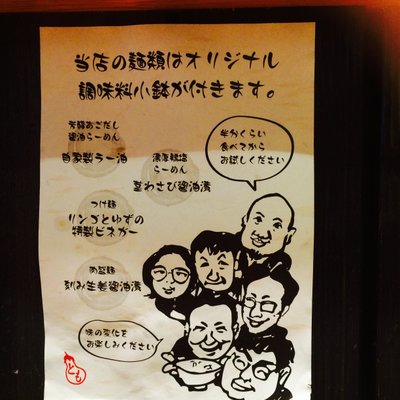 当店の麺類はオリジナル
調味料小鉢が付きます。
芳醇あごだし
醤油らーめん
自家製ラー油
濃厚鶏塩
らーめん
茎わさび醤油漬
つけ麺
リンゴとゆずの
特製ビネガー
刻み生姜醤油漬
半分くらい
食べてから
お試しください
味の変化を
お楽しみください
とも